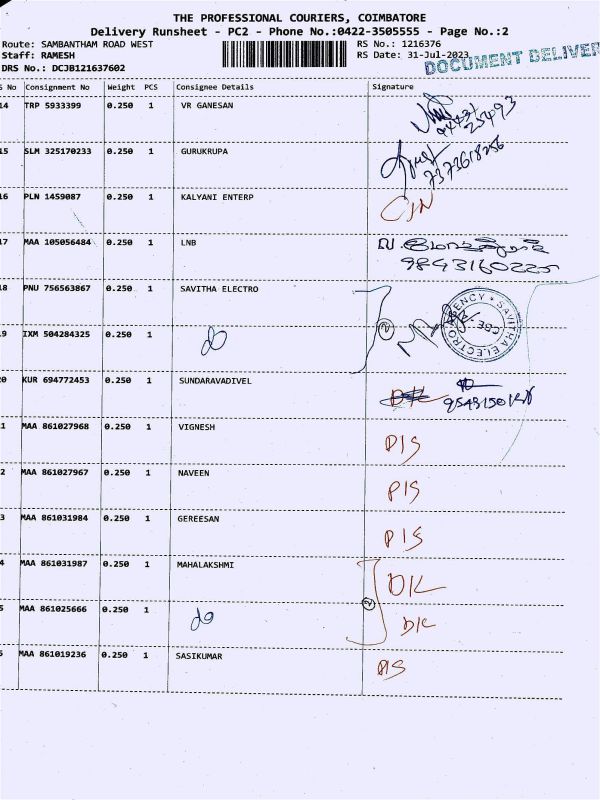 THE PROFESSIONAL COURIERS, COIMBATORE
Delivery Runsheet - PC2 - Phone No.:0422-3505555 - Page No.:2
Route: SAMBANTHAM ROAD WEST
Staff: RAMESH
DRS No.: DCJB121637602
RS No.: 1216376
RS Date: 31-Jul-2023
DOCUMENT DELIVER
S No Consignment No Weight PCS Consignee Details Signature
14 TRP 5933399 0.250 1 VR GANESAN
15 SLM 325170233 0.250 1 GURUKRUPA
7373618256
16 PLN 1459087 0.250 1 KALYANI ENTERP
17 MAA 105056484 0.250 1 LNB
9843160225
18 PNU 756563867 0.250 1 SAVITHA ELECTRO
2
SAVITHA ELECTRO AGENCY
CBE
19 IXM 504284325 0.250 1 do
20 KUR 694772453 0.250 1 SUNDARAVADIVEL
1 MAA 861027968 0.250 1 VIGNESH DIS
2 MAA 861027967 0.250 1 NAVEEN DIS
3 MAA 861031984 0.250 1 GEREESAN DIS
4 MAA 861031987 0.250 1 MAHALAKSHMI DK
2
5 MAA 861025666 0.250 1 do DK
6 MAA 861019236 0.250 1 SASIKUMAR DIS